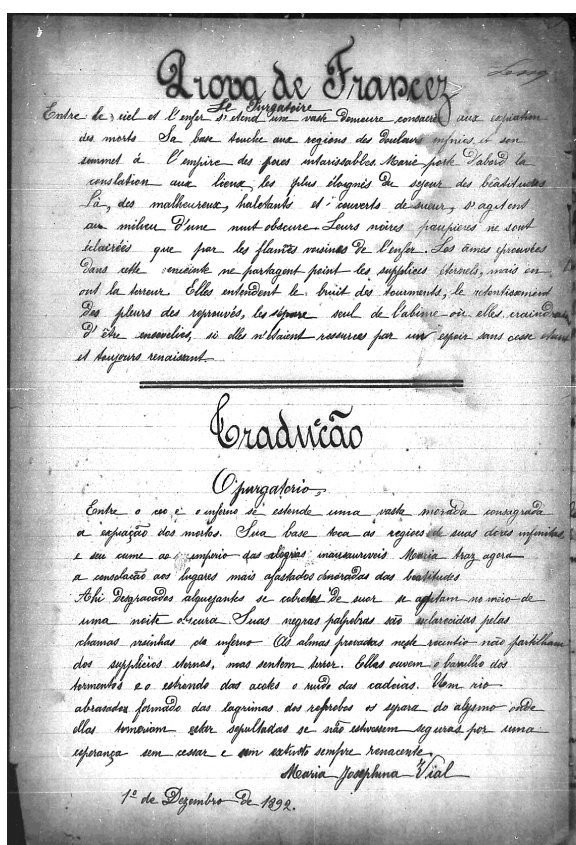 Prova de Francez
Le Purgatoire
Entre le ciel et l'enfer s'etend une vaste demeure consacrée aux expiation
des morts Sa base touche aux regions des douleurs infinies et son
summet à l'empire des joies intarissables. Marie porte d'abord la
conslation aux lieux, les plus éloignés du sejour des béatitudes
Là, des malheureux, haletants et couverts de sueur, s'agitent
au milieu d'une nuit obscure. Leurs noires paupieres ne sont
éclairées que par les flammes voisines de l'enfer. Les âmes éprouvées
dans cette enceinte ne partagent point les supplices éternels, mais en
ont la terreur. Elles entendent le bruit des tourments, le retentissement
des pleurs des reprouvés, les separe seul de l'abime où elles craindraient
d'être ensevelies, si elles n'étaient par un espoir sans cesse
et toujours renaissant.
Traducção
O purgatorio,
Entre o ceo e o inferno se estende uma vasta morada consagrada
a expiação dos mortos. Sua base toca as regiões de suas dores infinitas
e seu cume ao imperio das alegrias Maria traz agora
a consolação aos lugares mais afastados das beatitudes
Ahi desgraçados alquejantes se cobertos de suor se agitam no meio de
uma noite obscura. Suas negras palpebras são esclarecidas pelas
chamas visinhas do inferno Os almas provadas neste recintio não partilham
dos supplicios eternos, mas sentem terror. Ellas ouvem o barulho dos
tormentos e o estrondo das acoites o ruido das cadeias. Um rio
abrasador formado das lagrimas dos reprobos os separa do abysmo onde
ellas temeriam estar sepultadas se não estivessem seguras por uma
esperança sem cessar e sempre renacente.
Maria Josephina Vial
1º de Dezembro de 1892.